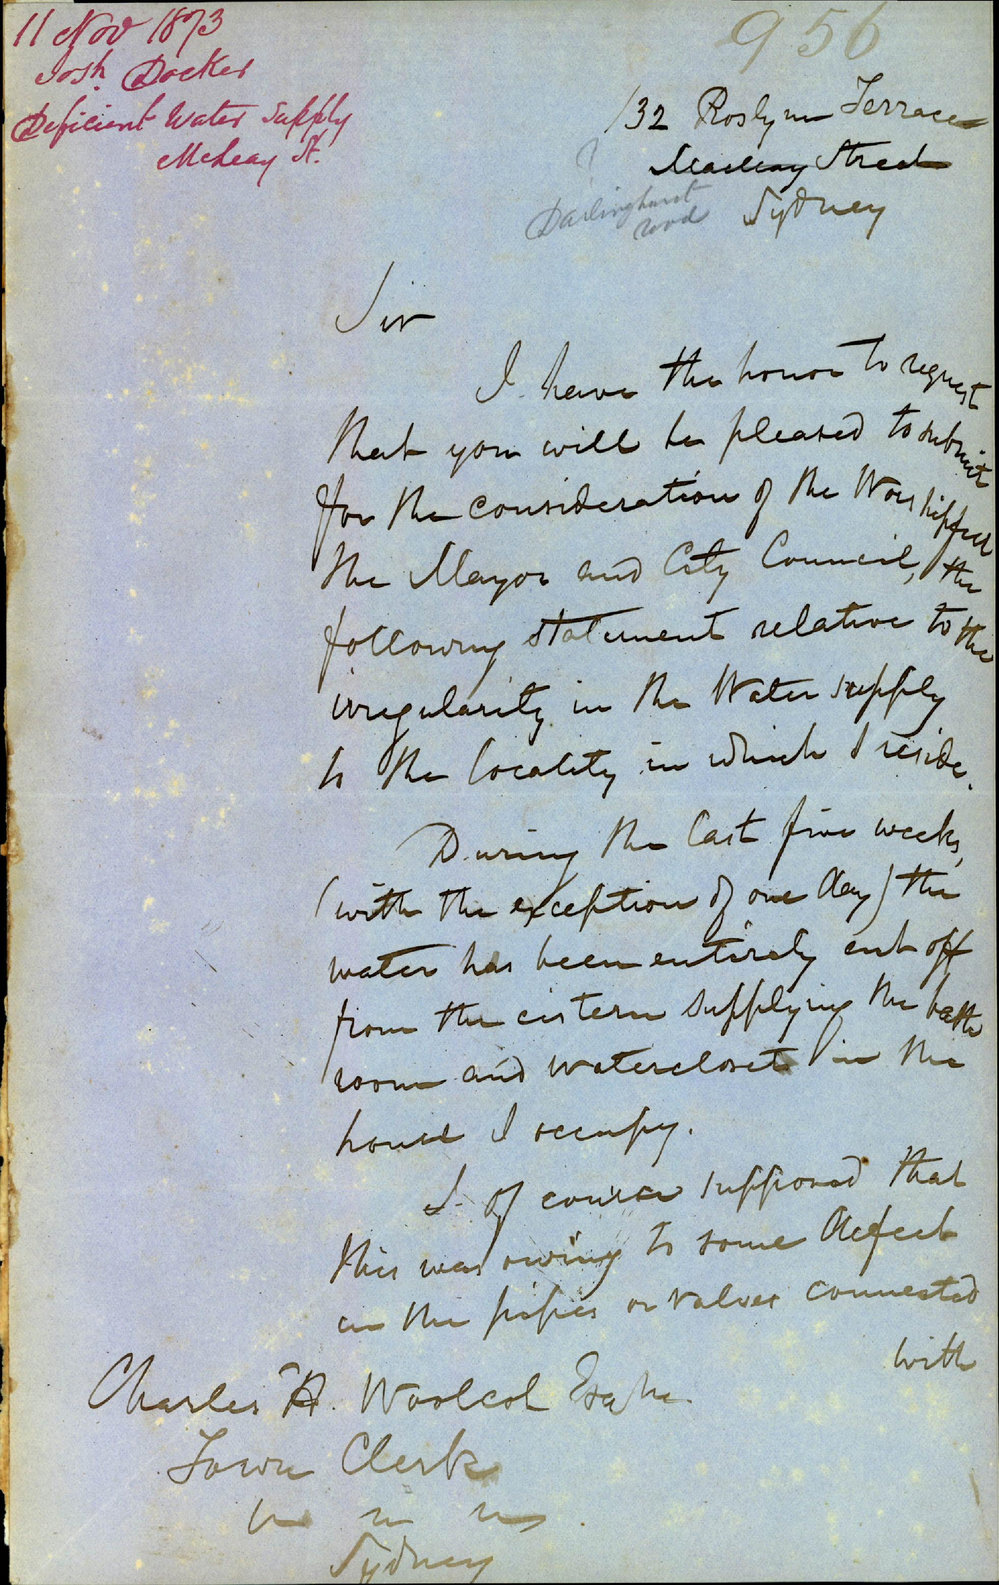 11 Nov 1873
Josh. Docker
Deficient Water Supply
McLeay St.
956
132 Roslyn Terrace
Macleay Street
Sydney
?
Darlinghurst
road
Sir
I have the honor to request
that you will be pleased to submit
for the consideration of the Worshipful
the Mayor and City Council, the
following statement relative to the
irregularity in the Water supply
to the locality in which I reside.
During the last five weeks,
(with the exception of one day) the
water has been entirely cut off
from the cistern supplying the bath
room and watercloset in the
house I occupy.
I of course supposed that
this was owing to some defect
in the pipes or valves connected
with
Charles H. Woolcot Esqre
Town Clerk
Sydney